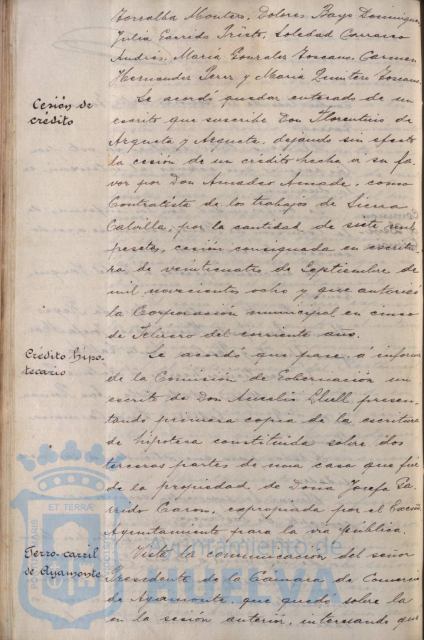 Torralba Montero, Dolores Bayo Domínguez,
Julia Garrido Tristo, Soledad Carrasco
Andrés, María Gonzalez Toscano, Carmen
Hernandez Perez y María Quintero Toscano.
Cesión de
crédito
Se acordó quedar enterado de un
escrito que suscribe Don Florentino de
Argueta y Argueta, dejando sin efecto
la cesión de un crédito hecha á su fa-
vor por Don Amadeo Amade, como
Contratista de los trabajos de Sierra
Calvilla, por la cantidad de siete mil
pesetas, cesión consignada en escritu-
ra de veinticuatro de Septiembre de
mil novecientos ocho y que autorizó
la Corporación municipal en cinco
de Febrero del corriente año.
Crédito hipo-
tecario
Se acordó que pase á informe
de la Comisión de Gobernación un
escrito de Don Aurelio Llull presen-
tando primera copia de la escritura
de hipoteca constituida sobre dos
terceras partes de una casa que fué
de la propiedad de Doña Josefa Ga-
rrido Caron, expropiada por el Excmo.
Ayuntamiento para la vía pública.
Ferro-carril
de Ayamonte
Vista la comunicación del señor
Presidente de la Cámara de Comercio
de Ayamonte, que quedó sobre la
en la sesión anterior, interesando que
ET TERRÆ
Ayuntamiento de
HUELVA